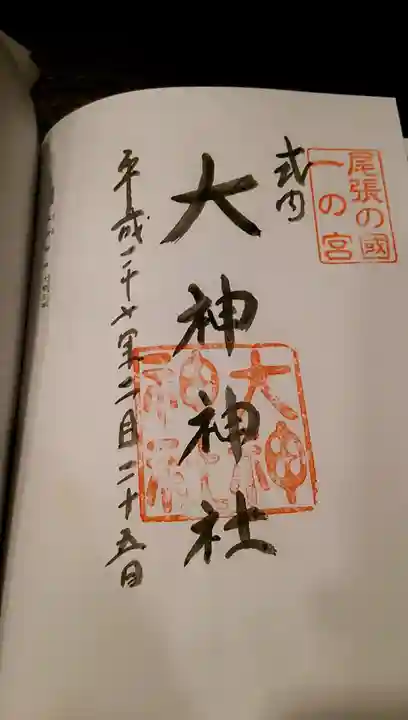 尾張の國
一の宮
式内
大神神社
大神
神社
平成二十七年二月二十五日